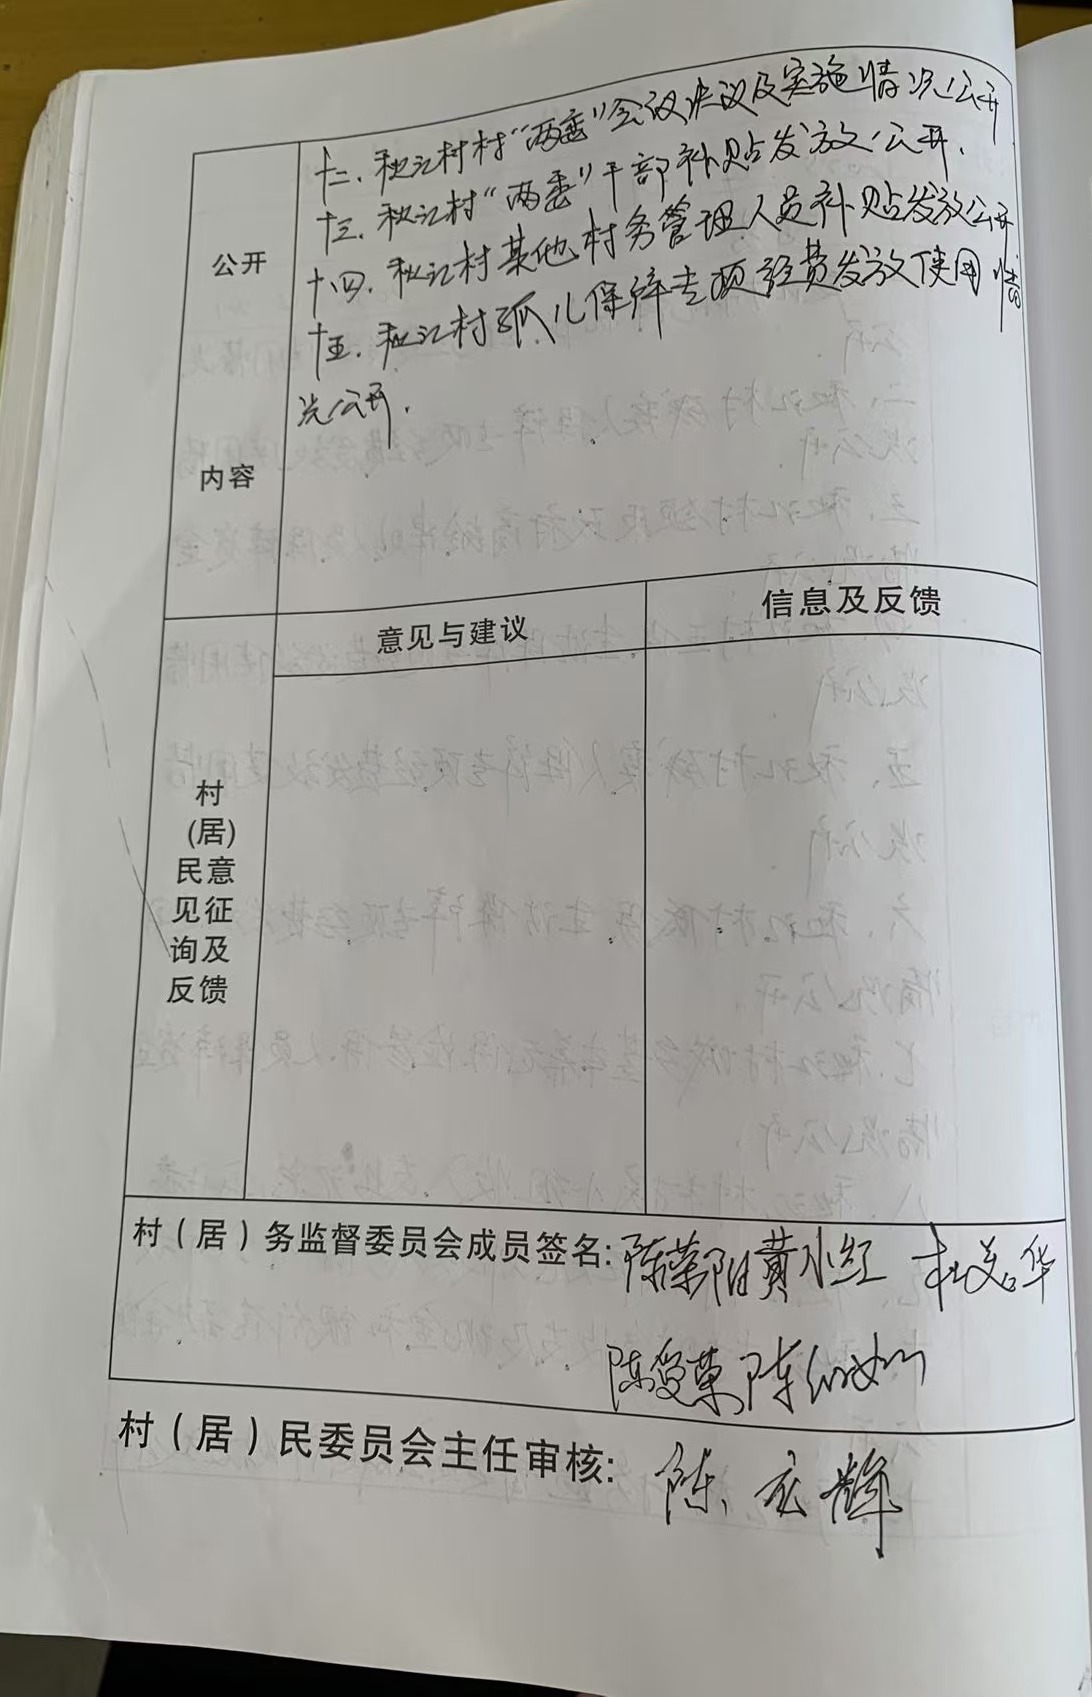 十二、秋江村村“两委”会议决议及实施情况公开.
十三、秋江村“两委”干部补贴发放公开.
十四、秋江村其他村务管理人员补贴发放公开
十五、秋江村孤儿保障专项经费发放使用情
况公开.
公开
内容
意见与建议
信息及反馈
村
(居)
民意
见征
询及
反馈
村（居）务监督委员会成员签名: 陈荣阳 黄小红 杜美华
陈受荣 陈
村（居）民委员会主任审核: 陈宏辉